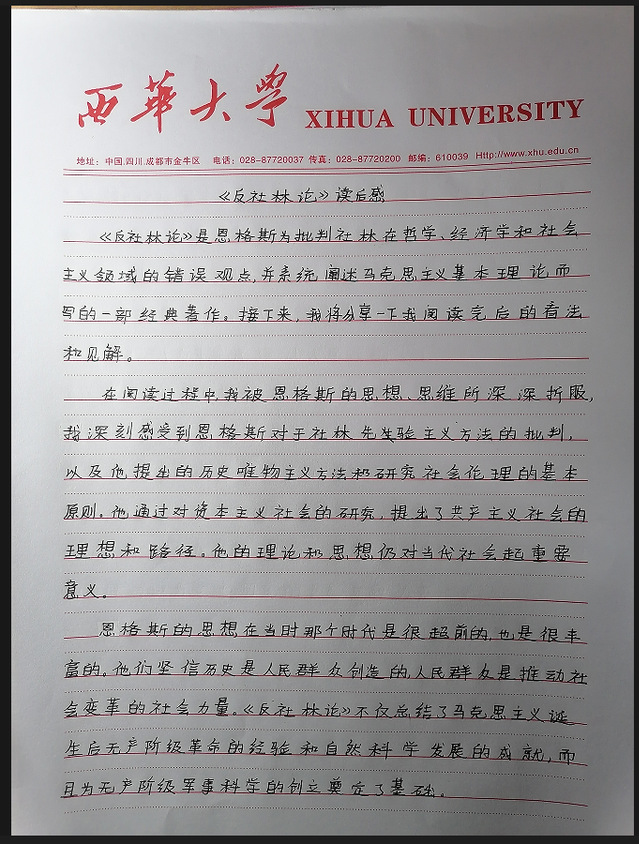 西华大学 XIHUA UNIVERSITY
地址：中国.四川.成都市金牛区 电话：028-87720037 传真：028-87720200 邮编：610039 Http://www.xhu.edu.cn
《反社林论》读后感
《反社林论》是恩格斯为批判社林在哲学、经济学和社会
主义领域的错误观点，并系统阐述马克思主义基本理论而
写的一部经典著作。接下来，我将分享一下我阅读完后的看法
和见解。
在阅读过程中，我被恩格斯的思想、思维所深深折服，
我深刻感受到恩格斯对于社林先生验主义方法的批判，
以及他提出的历史唯物主义方法和研究社会伦理的基本
原则。他通过对资本主义社会的研究，提出了共产主义社会的
理想和路径。他的理论和思想仍对当代社会起重要
意义。
恩格斯的思想在当时那个时代是很超前的，也是很丰
富的。他们坚信历史是人民群众创造的，人民群众是推动社
会变革的社会力量。《反社林论》不仅总结了马克思主义诞
生后无产阶级革命的经验和自然科学发展的成就，而
且为无产阶级军事科学的创立奠定了基础。